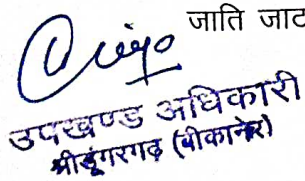 जाति जाट
उपखण्ड अधिकारी
श्रीडूंगरगढ़ (बीकानेर)